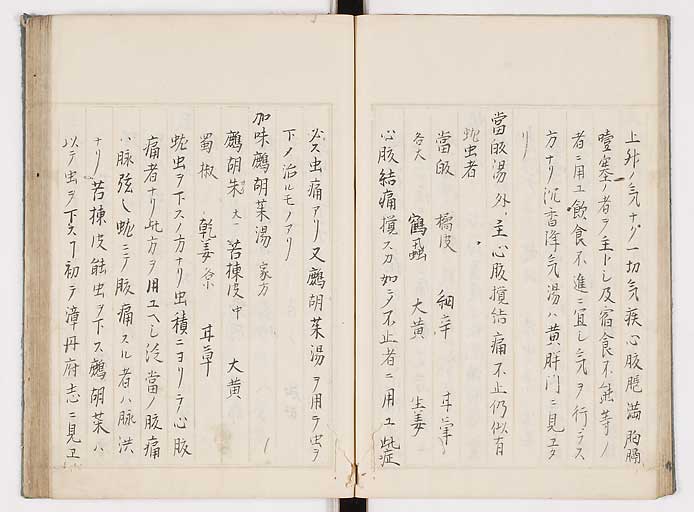 上升ノ気ナド一切気疾心腹脹満胸膈
噎塞ノ者ヲ主トシ及宿食不能等ノ
者ニ用ユ飲食不進ニ宜シ気ヲ行ラス
方ナリ沉香降气湯ハ黄胖門ニ見ユタ
リ
當皈湯 外、主心腹撹結痛不止仍似有
蚘虫者
當皈 橘皮 細辛 甘草
各大 鶴虱 大黄 生姜
心腹結痛撹スカ如ニ〆不止者ニ用ユ此症
必ス虫痛アリ又鷓胡菜湯ヲ用テ虫ヲ
下ノ治ルモノアリ
加味鷓胡菜湯 家方
鷓胡朱 大一 苦棟皮中 大黄
蜀椒 乾姜 各小 甘草
蚘虫ヲ下スノ方ナリ虫積ニヨリテ心腹
痛者ナリ此方ヲ用ユヘシ泛當ノ腹痛
ハ脉弦シ蚘ニテ腹痛スル者ハ脉洪
ナリ苦棟皮能虫ヲ下ス鷓胡菜ハ
以テ虫ヲ下スヿ初テ漳州府志ニ見ユ